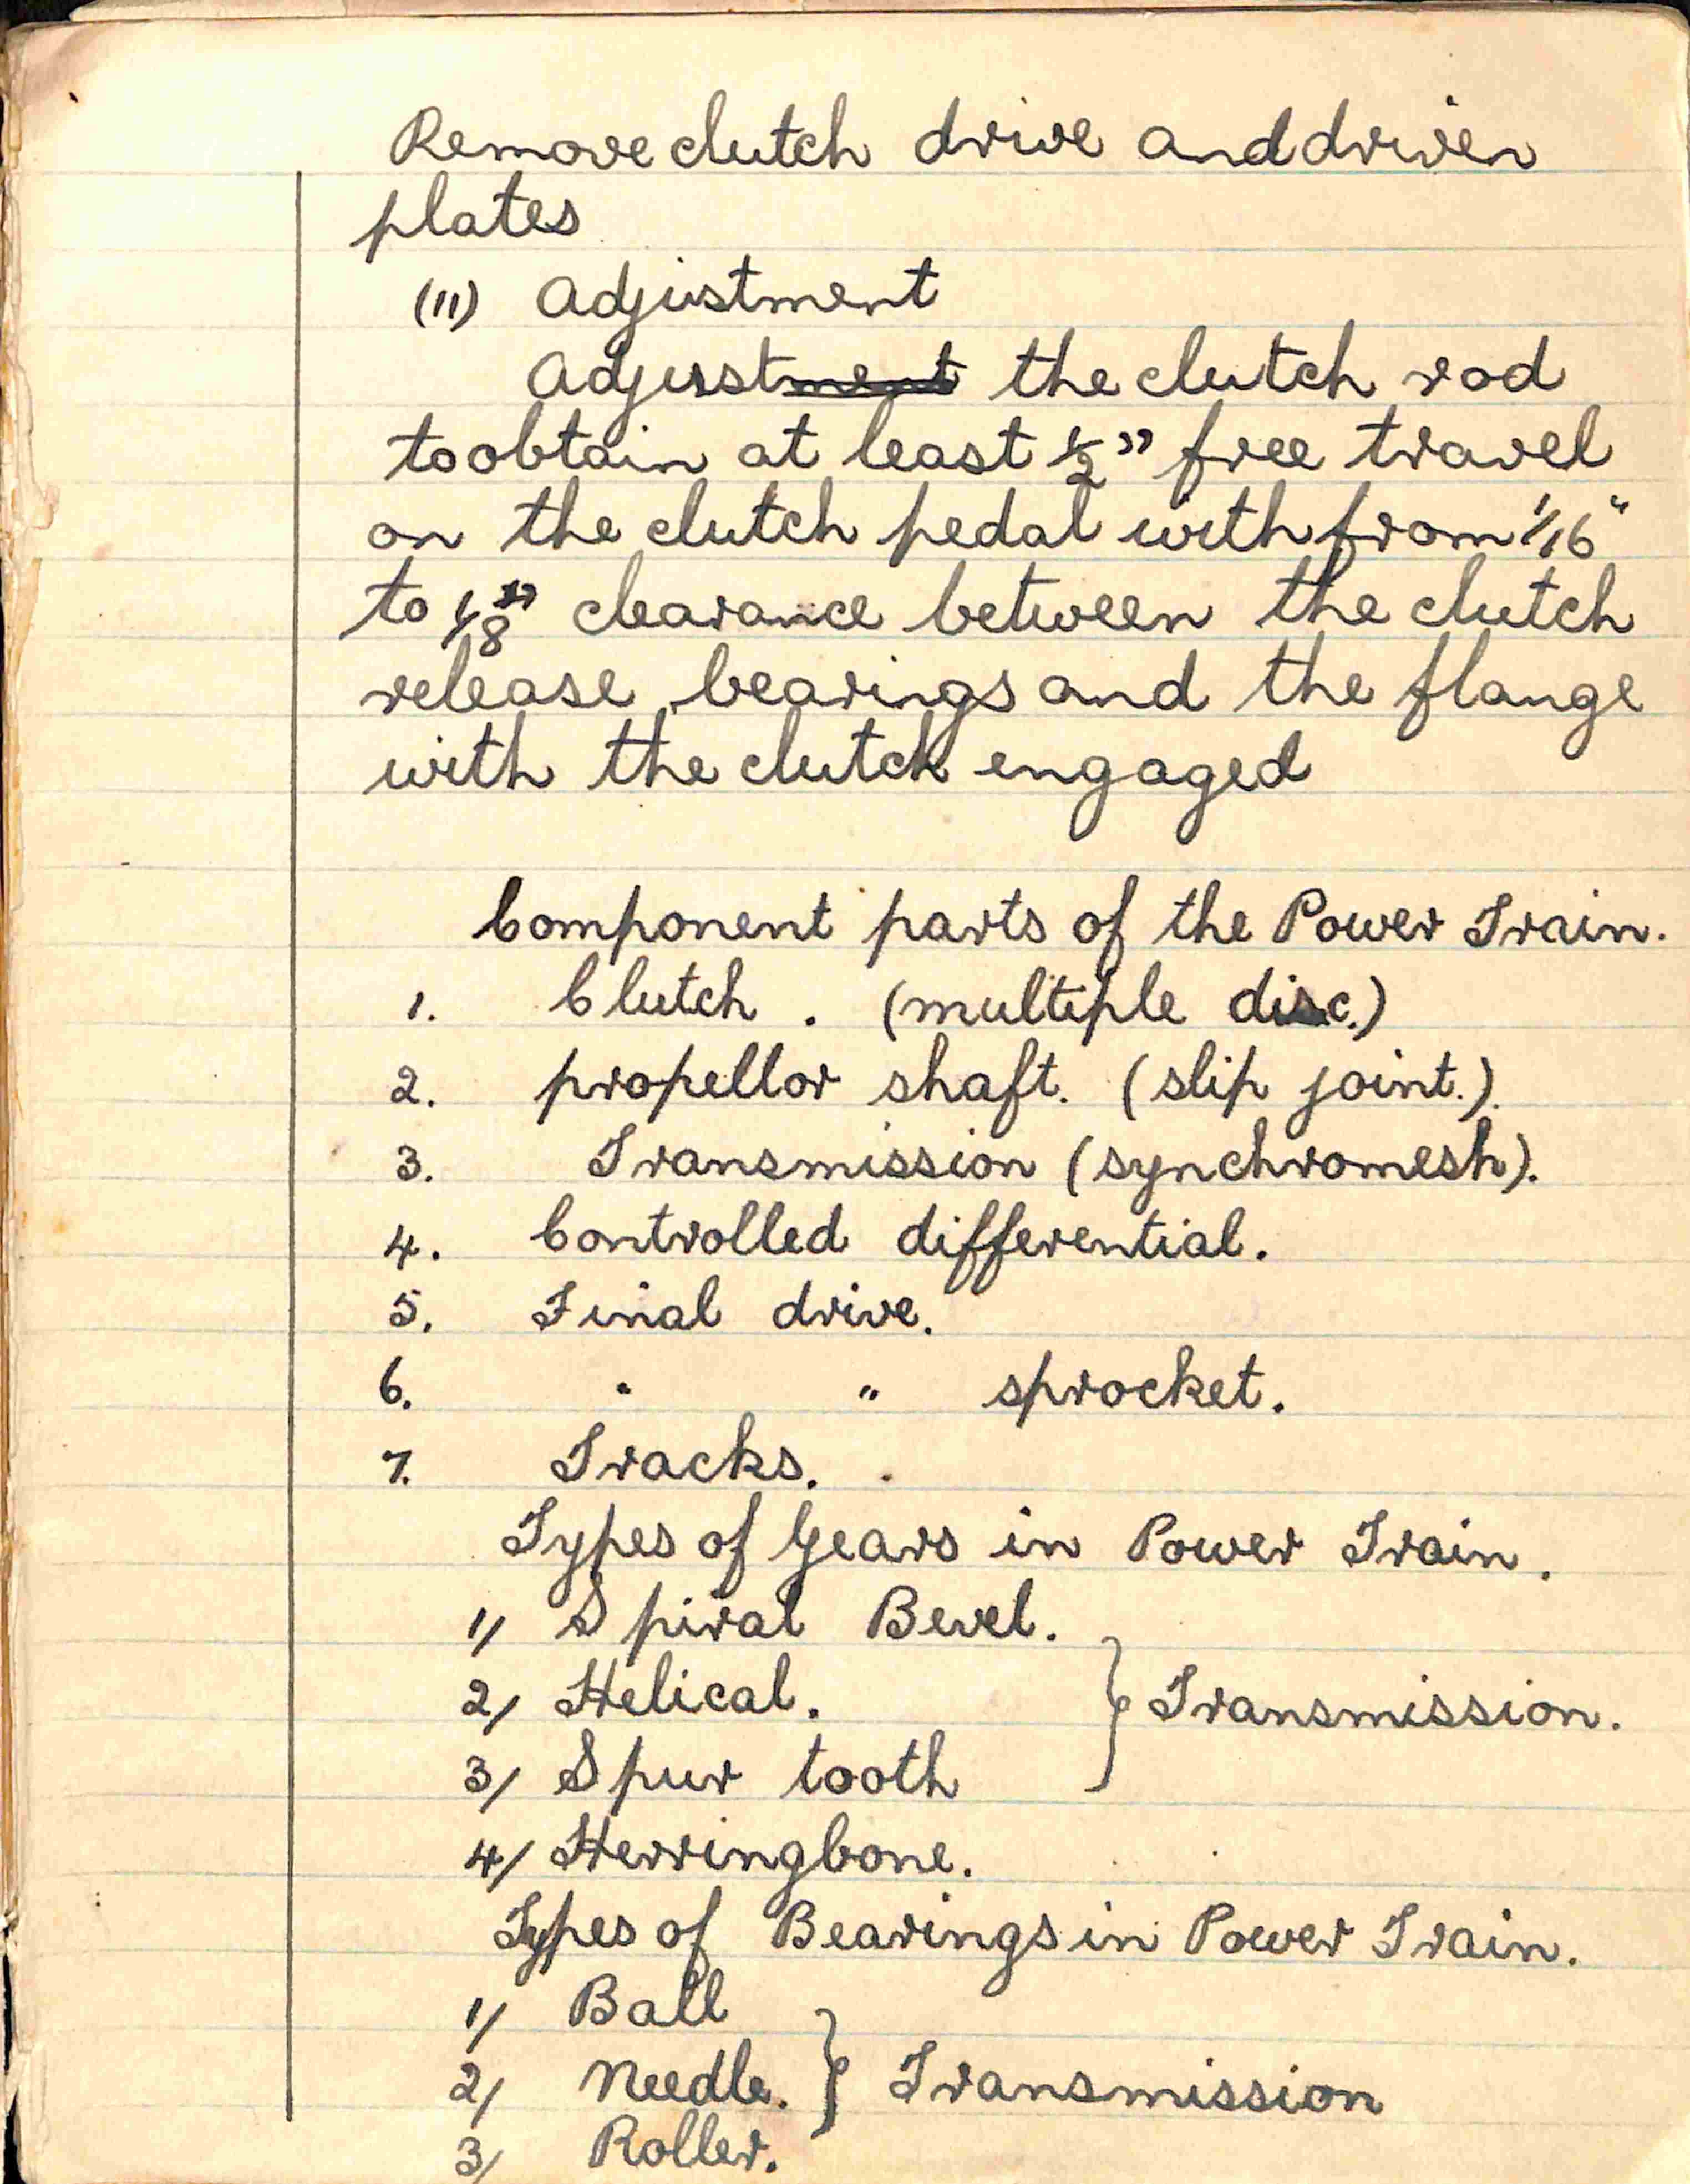 Remove clutch drive and driven
plates
(11) Adjustment
Adjustment the clutch rod
to obtain at least 1/2" free travel
on the clutch pedal with from 1/16"
to 1/8" clearance between the clutch
release bearings and the flange
with the clutch engaged
Component parts of the Power Train.
1. Clutch. (multiple disc.)
2. propellor shaft. (slip joint.).
3. Transmission (synchromesh).
4. Controlled differential.
5. Final drive.
6. " " sprocket.
7. Tracks.
Types of Gears in Power Train.
1/ Spiral Bevel.
2/ Helical. } Transmission.
3/ Spur tooth
4/ Herringbone.
Types of Bearings in Power Train.
1/ Ball
2/ Needle. } Transmission
3/ Roller.